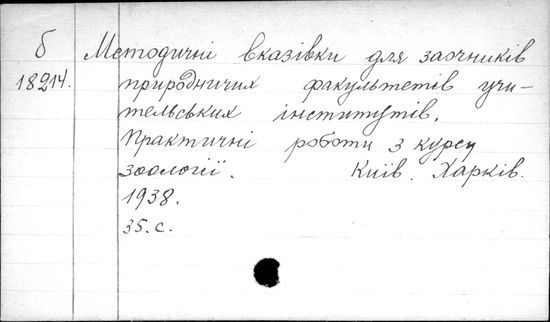 б Методичні вказівки для заочників
18214. природничих факультетів учи-
тельських інститутів.
Практичні роботи з курсу
зоології. Київ. Харків.
1938.
35.с.